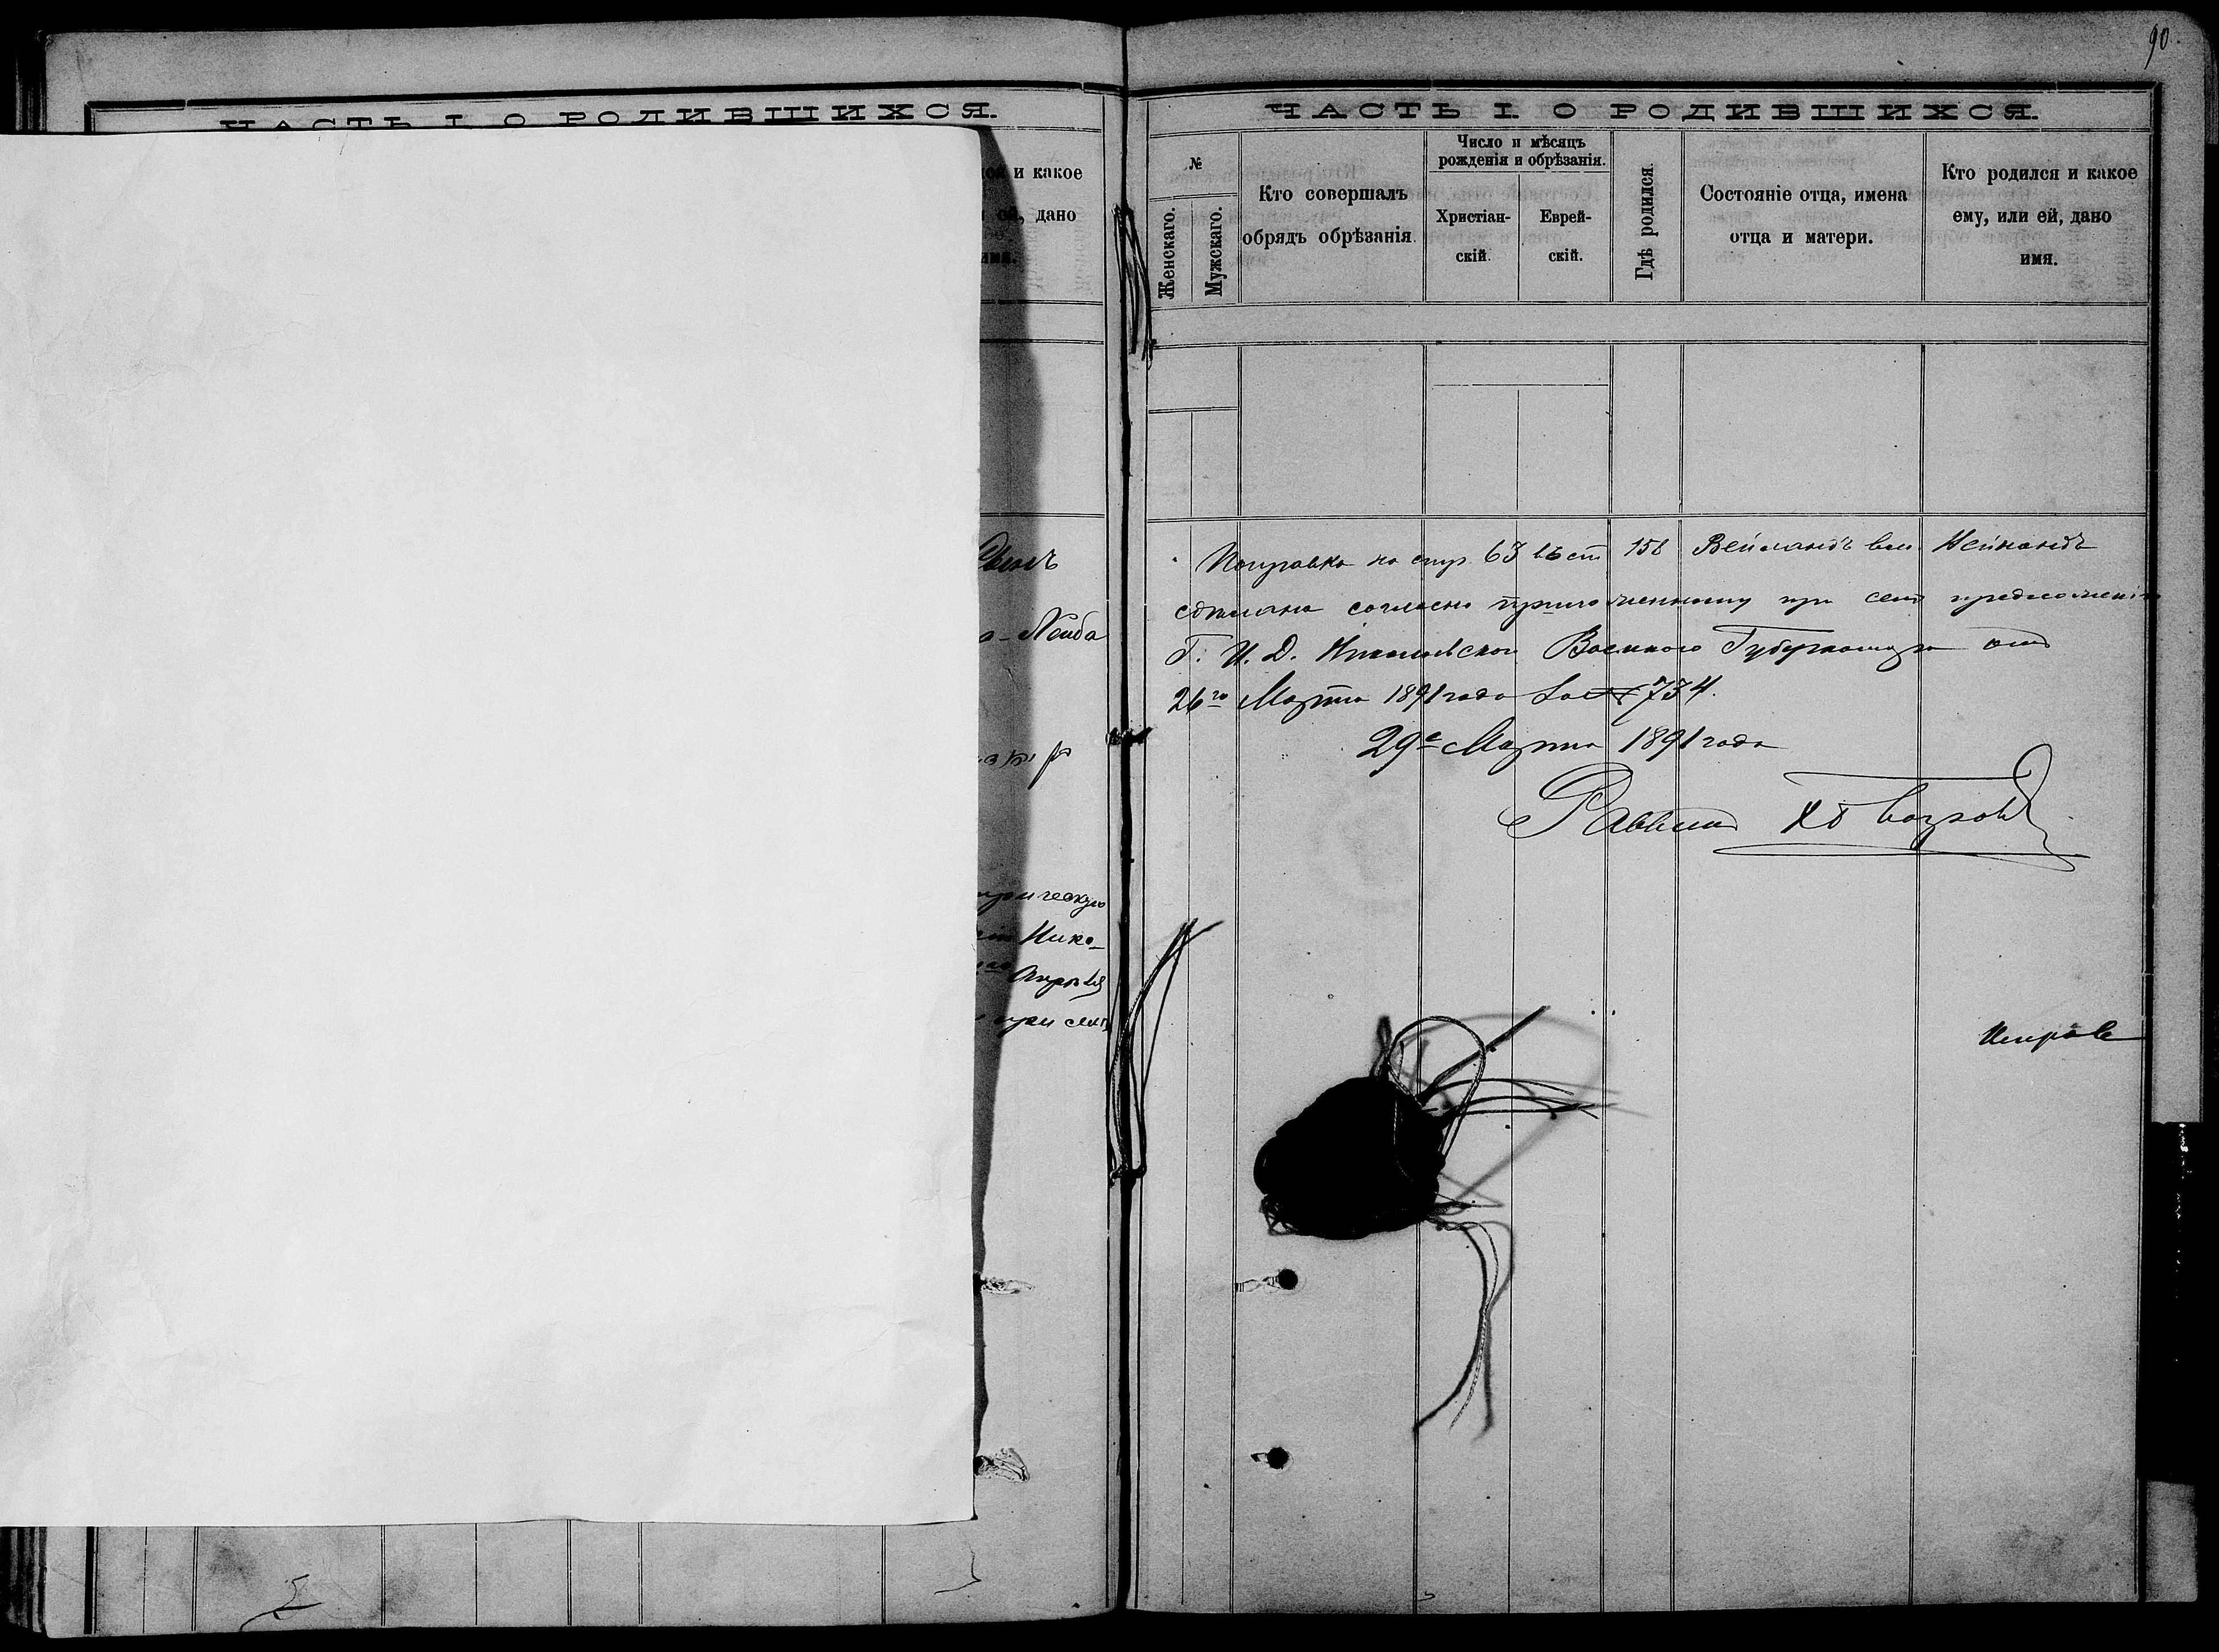 ЧАСТЬ I. О РОДИВШИХСЯ.
и какое
дано
Сынъ
Лейба
Нико-
при семъ
90.
ЧАСТЬ I. О РОДИВШИХСЯ.
№
Женскаго.
Мужскаго.
Кто совершалъ
обрядъ обрѣзанія.
Число и мѣсяцъ
рожденія и обрѣзанія.
Христіан-
скій.
Еврей-
скій.
Гдѣ родился.
Состояніе отца, имена
отца и матери.
Кто родился и какое
ему, или ей, дано
имя.
Поправка на стр. 63 въ ст 158 Вейландъ вм. Нейландъ
сдѣлана согласно приложенному при семъ предложенію
Г. И. Д. Николаевскаго Военнаго Губернатора отъ
26го Марта 1891 года за № 734.
29е Марта 1891 года
Раввинъ